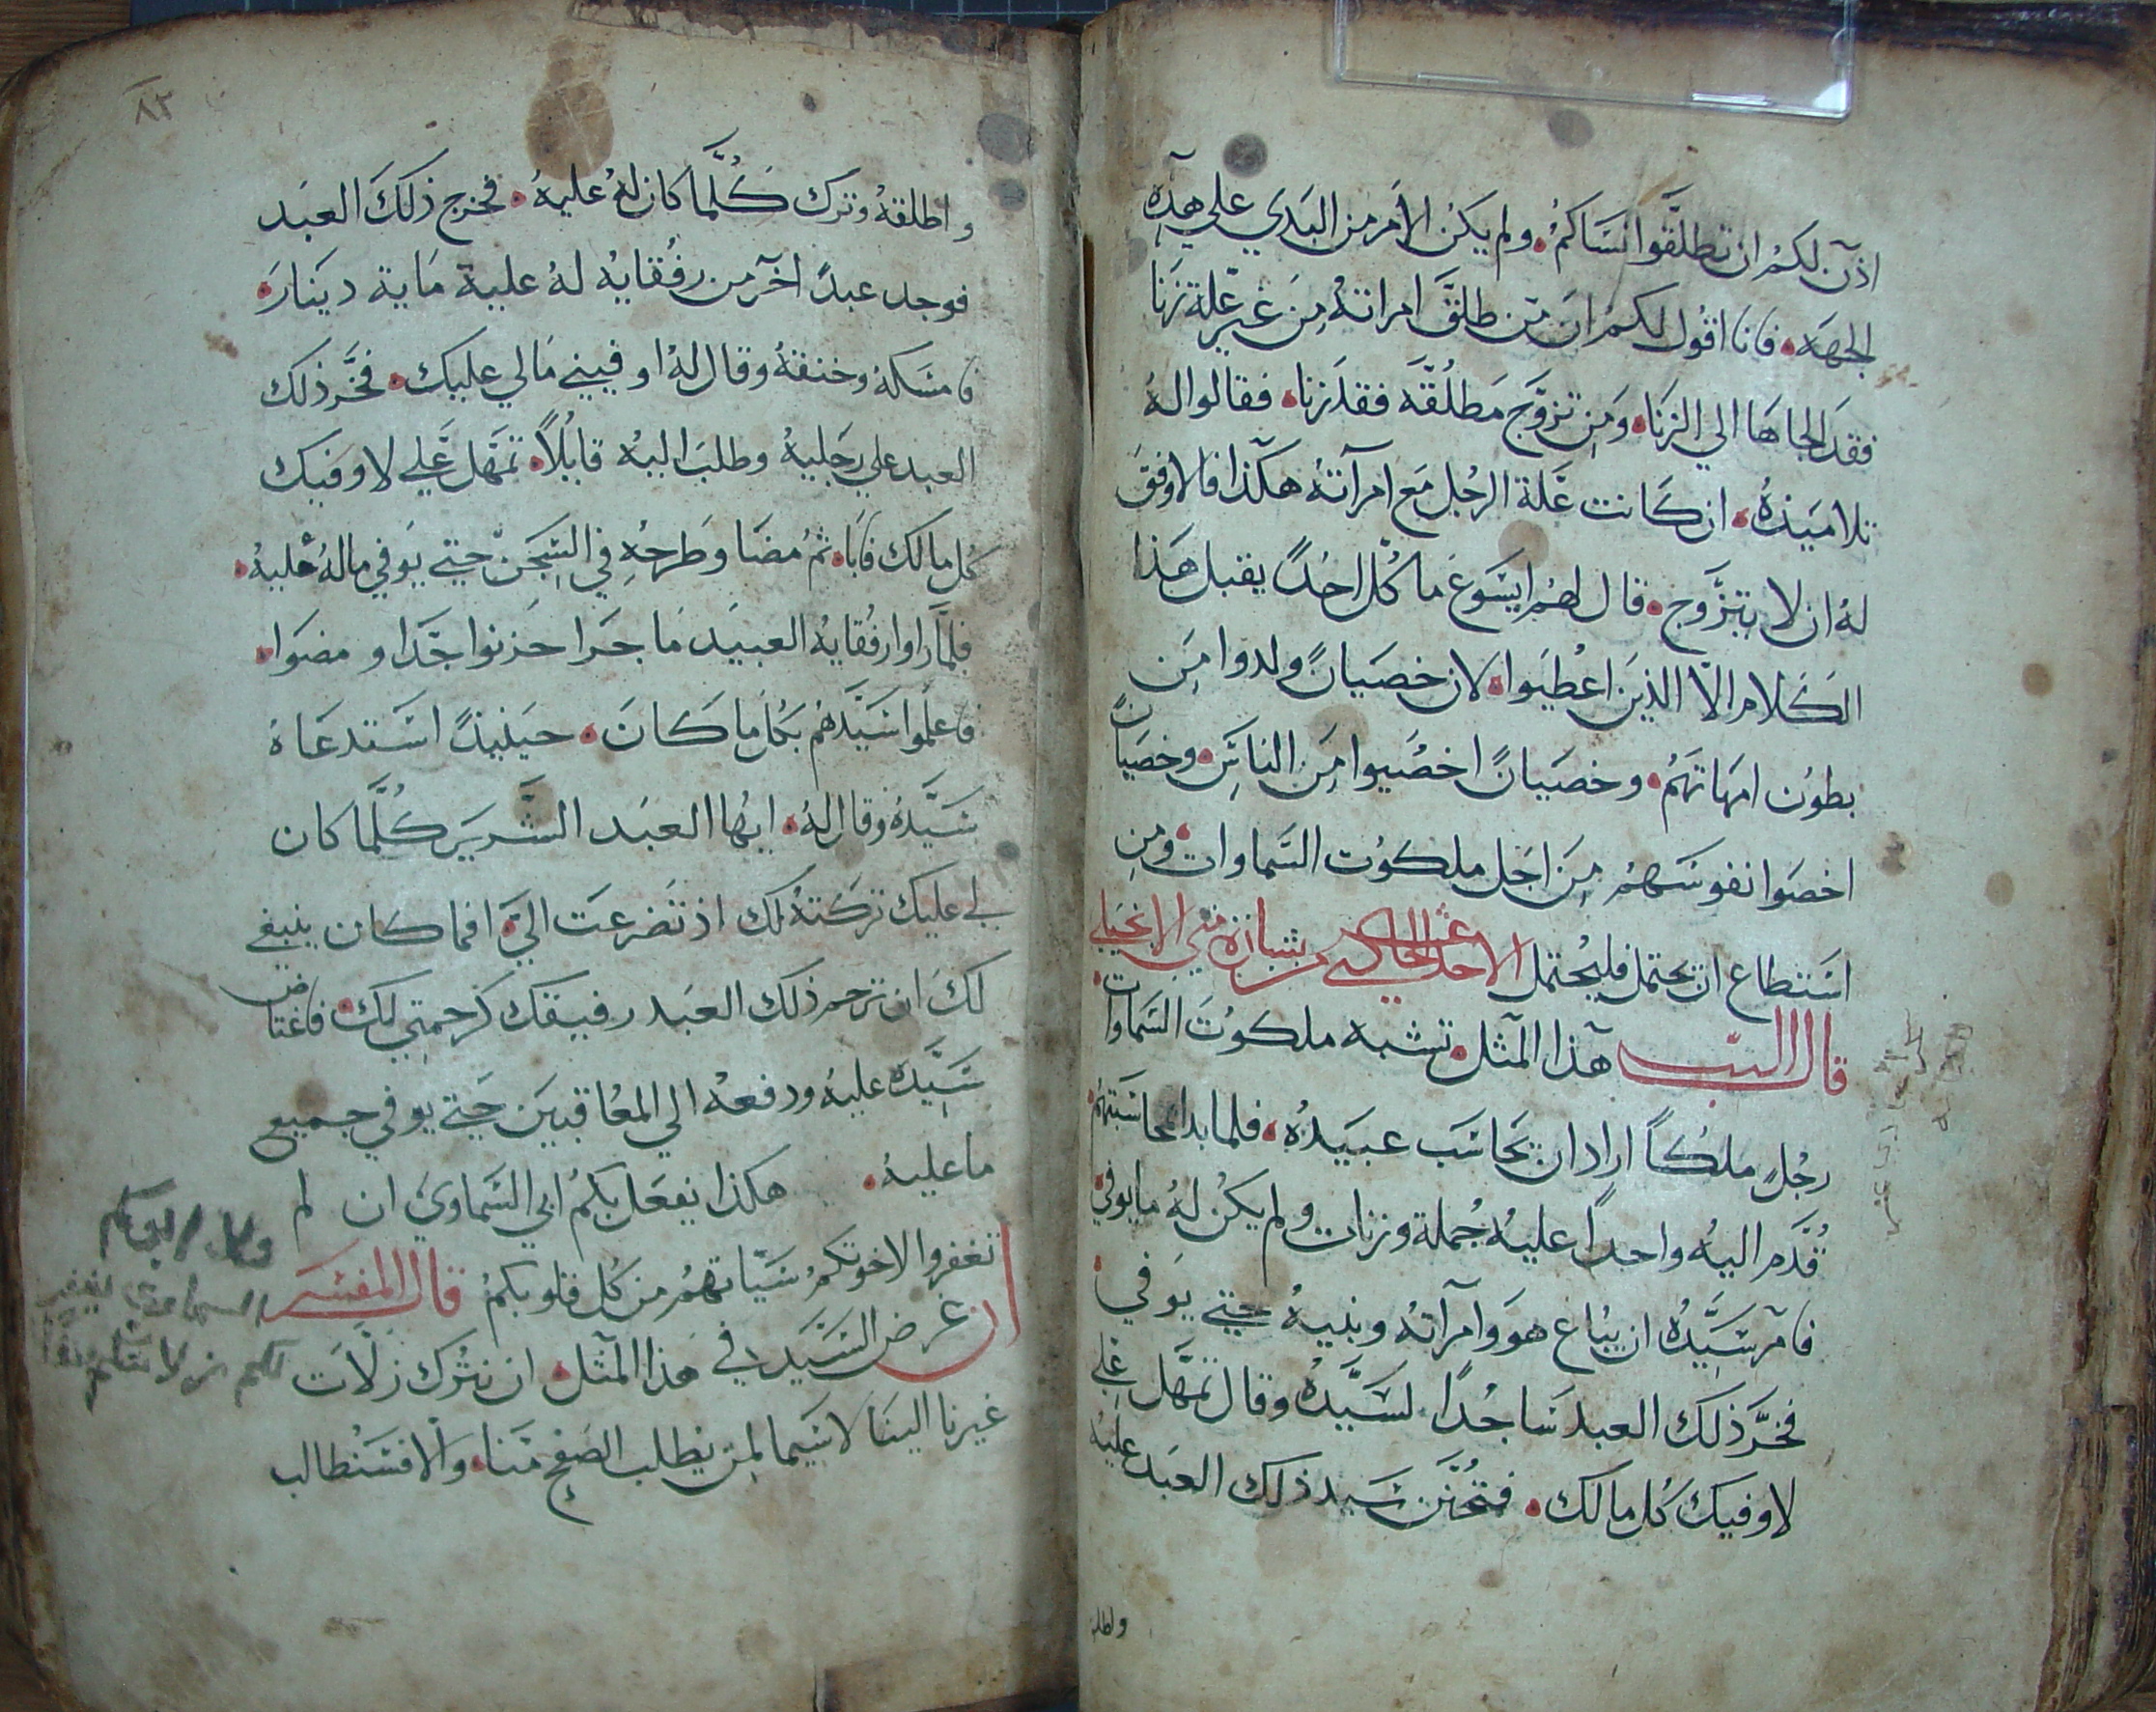 اذن لكم ان تطلقوا نساكم ولم يكن الامر من البدي على هذه
الجهه فانا اقول لكم ان من طلق امراته من غير علة زنا
فقد الجاها الي الزنا ومن تزوج مطلقه فقد زنا فقالوا له
تلاميذه ان كانت علة الرجل مع امراته هكذا فالاوفق
له ان لا يتزوج قال لهم ايسوع ما كل احد يقبل هذا
الكلام الا الذين اعطيوا لان خصيان ولدوا من
بطون امهاتهم وخصيان اخصيوا من الناس وخصيان
اخصوا نفوسهم من اجل ملكوت السماوات ومن
استطاع ان يحتمل فليحتمل الاحد الحادي عشر بشارة متي الانجيلي
قال الرب هذا المثل تشبه ملكوت السماوات
رجل ملكا اراد ان يحاسب عبيده فلما بدا بمحاسبتهم
قدم اليه واحدا عليه جملة وزنات ولم يكن له ما يوفي
فامر سيده ان يباع هو وامراته وبنيه حتي يوفي
فخر ذلك العبد ساجدا لسيده وقال تمهل علي
لاوفيك كل مالك فتحنن سيد ذلك العبد عليه
واطلقه
٨٢
واطلقه وترك كلما كان له عليه فخرج ذلك العبد
فوجد عبدا اخر من رفقايه له عليه ماية دينار
فامسكه وخنقه وقال له اوفيني مالي عليك فخر ذلك
العبد علي رجليه وطلب اليه قايلا تمهل علي لاوفيك
كل مالك فابا ثم مضا وطرحه في السجن حتي يوفي ماله عليه
فلما راوا رفقايه العبيد ما جرا حزنوا جدا ومضوا
فاعلموا سيدهم بكل ما كان حينيذ استدعاه
سيده وقال له ايها العبد الشرير كلما كان
لي عليك تركته لك اذ تضرعت الي افما كان ينبغي
لك ان ترحم ذلك العبد رفيقك كرحمتي لك فاغتاض
سيده عليه ودفعه الي المعاقبين حتي يوفي جميع
ما عليه هكذا يفعل بكم ابي السماوي ان لم
تغفروا لاخوتكم سياتهم من كل قلوبكم قال المفسر
ان غرض السيد في هذا المثل ان نترك زلات
غيرنا الينا لا سيما لمن يطلب الصفح منا والا فسنطالب
ولا ابوكم
السماوي يغفر
لكم زلاتكم